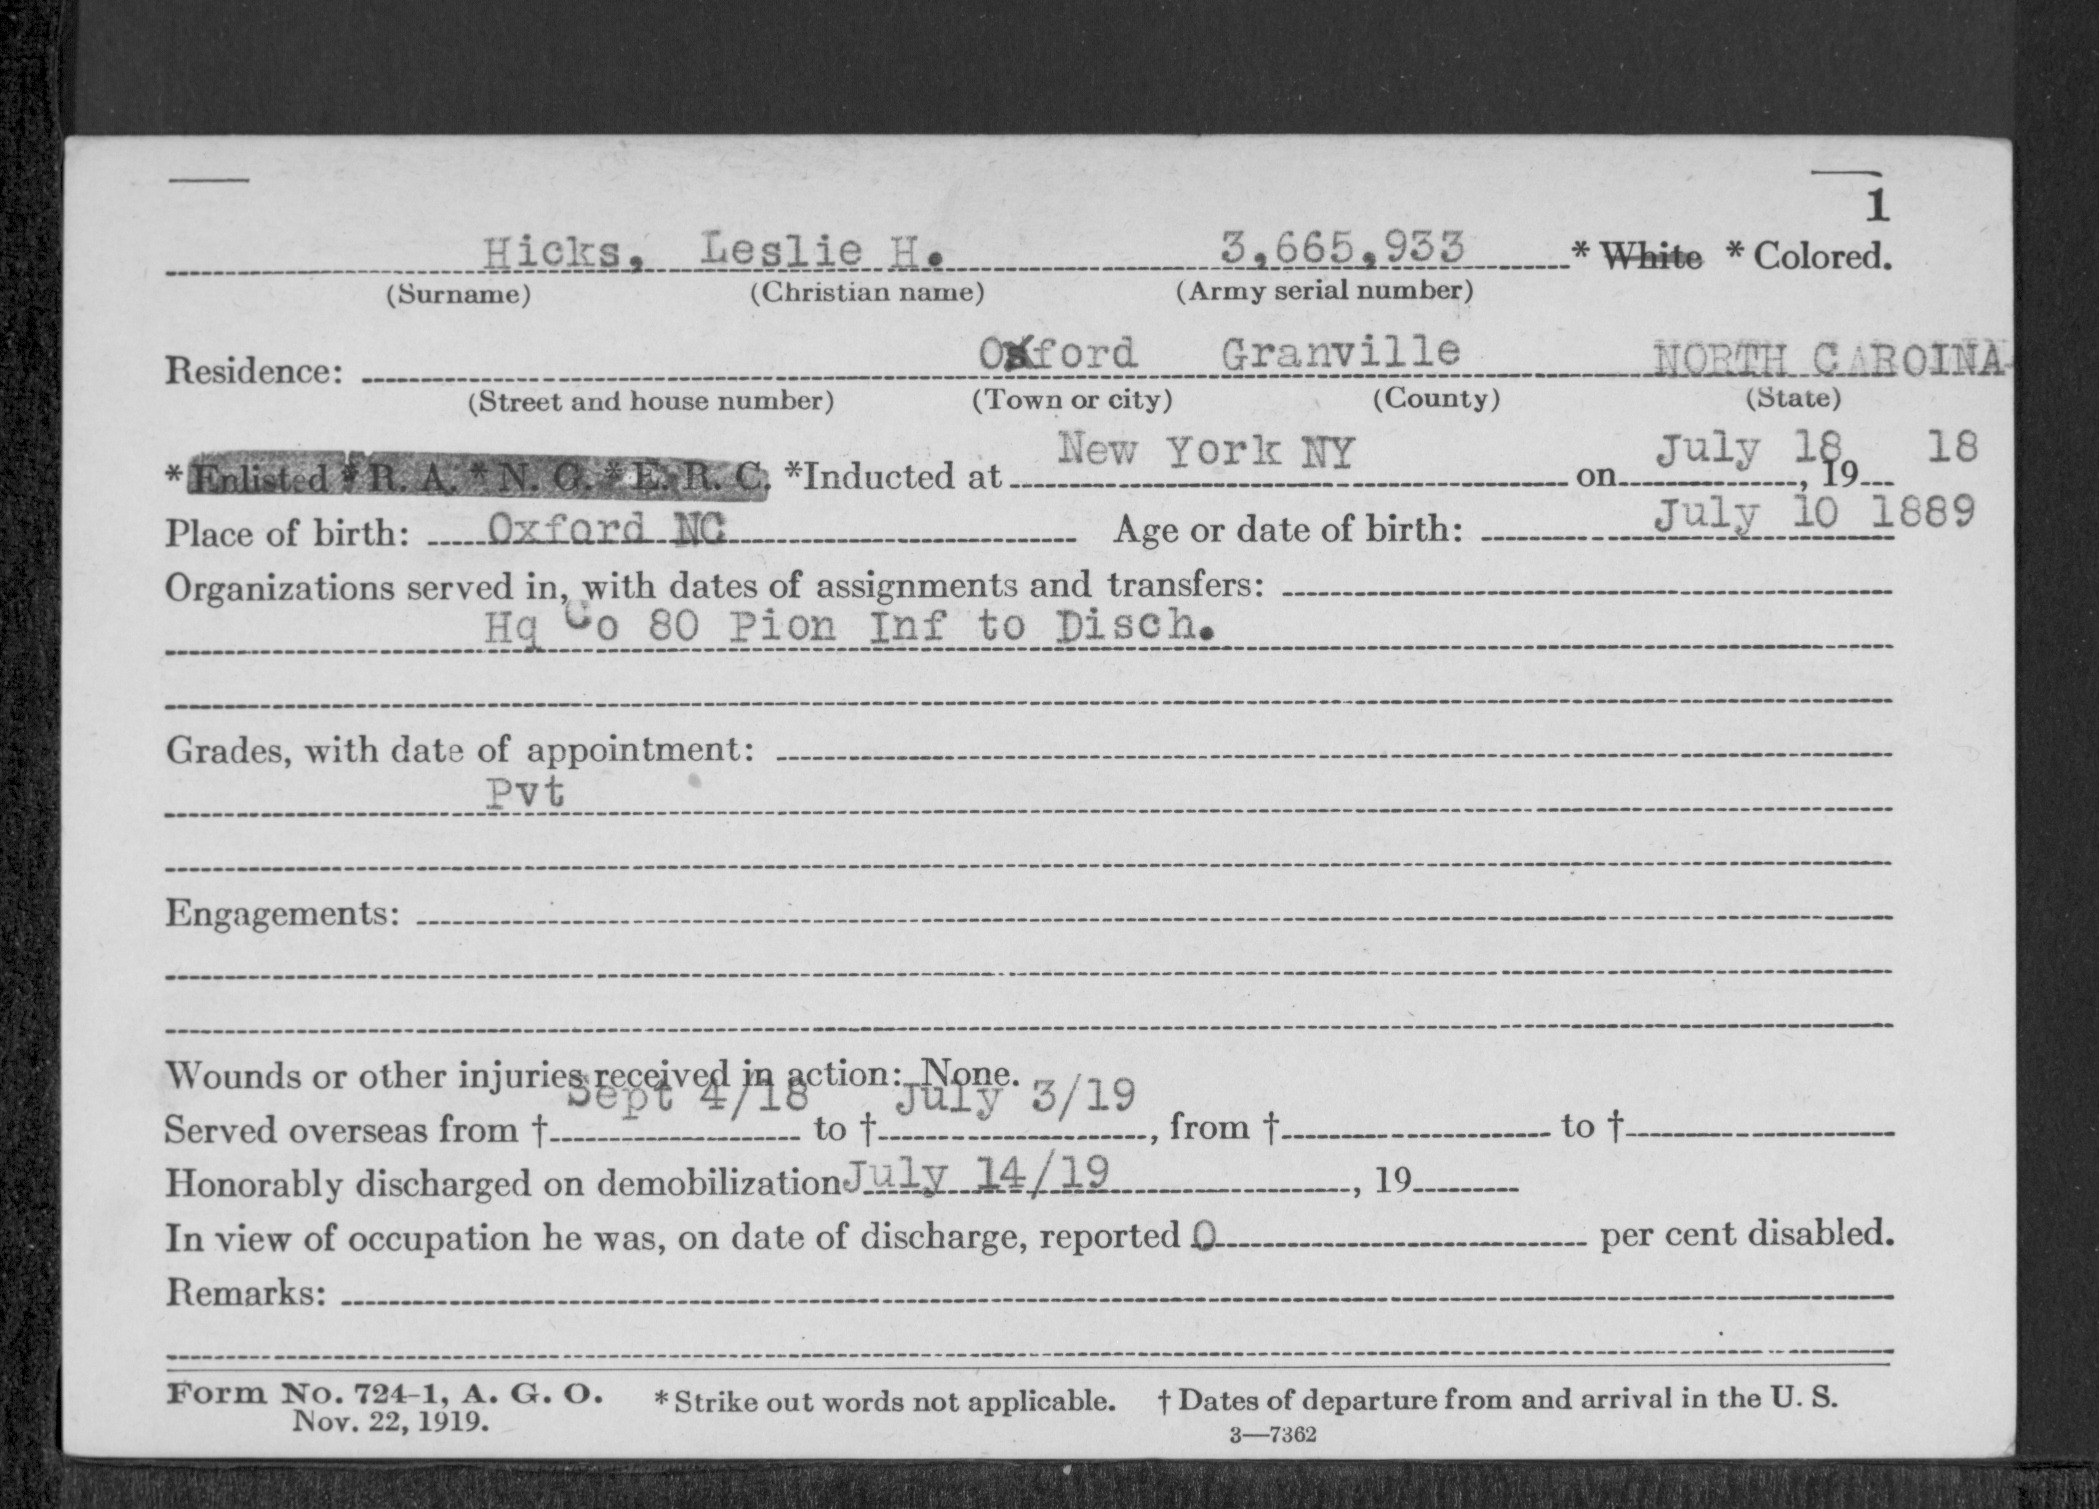 1
Hicks, Leslie H. 3,665,933 * White * Colored.
(Surname) (Christian name) (Army serial number)
Oxford Granville NORTH CAROINA
Residence:
(Street and house number) (Town or city) (County) (State)
New York NY July 18, 18
* Enlisted * R. A. * N. G. * E. R. C. *Inducted at on , 19
Place of birth: Oxford NC Age or date of birth: July 10 1889
Organizations served in, with dates of assignments and transfers:
Hq Co 80 Pion Inf to Disch.
Grades, with date of appointment:
Pvt
Engagements:
Wounds or other injuries received in action: None.
Sept 4/18 July 3/19
Served overseas from † to † , from † to †
Honorably discharged on demobilization July 14/19 , 19
In view of occupation he was, on date of discharge, reported 0 per cent disabled.
Remarks:
Form No. 724-1, A. G. O. * Strike out words not applicable. † Dates of departure from and arrival in the U. S.
Nov. 22, 1919.
3—7362